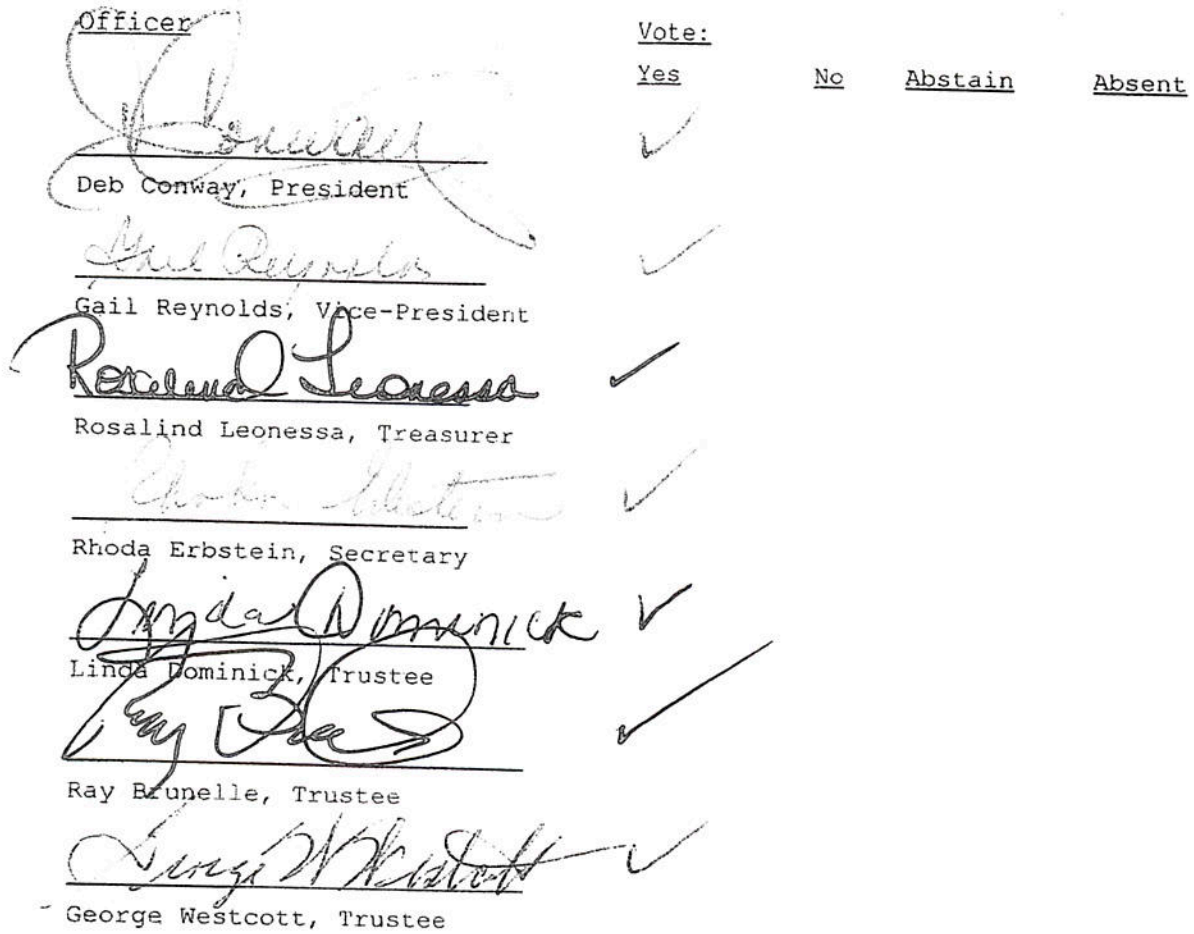 Officer Vote:
Yes No Abstain Absent
Conway ✓
Deb Conway, President
Gail Reynolds ✓
Gail Reynolds, Vice-President
Rosalind Leonessa ✓
Rosalind Leonessa, Treasurer
Rhoda Erbstein ✓
Rhoda Erbstein, Secretary
Linda Dominick ✓
Linda Dominick, Trustee
Ray ✓
Ray Brunelle, Trustee
George W Westcott ✓
George Westcott, Trustee